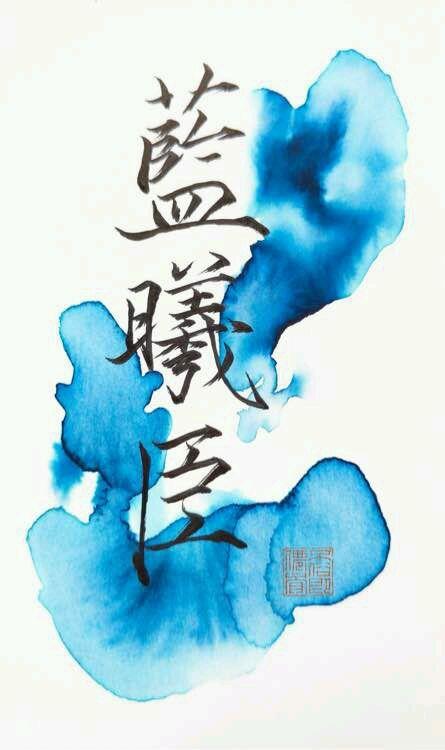 藍曦臣